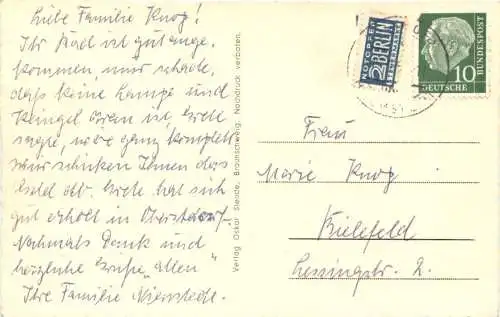 Liebe Familie Knog!
Ihr Rad ist gut ange-
kommen, nur schade,
daß keine Lampe und
Klingel dran ist, Grete
sagte, wäre ganz komplett
wir schicken Ihnen das
Geld ab. Grete hat sich
gut erholt in Oberstdorf!
Nochmals Dank und
herzliche Grüße „allen"
Ihre Familie Nierstedt.
Verlag Oskar Steude, Braunschweig. Nachdruck verboten.
NOTOPFER
2 BERLIN
STEUERMARKE
10
DEUTSCHE
BUNDESPOST
Frau
Marie Knog
Bielefeld
Lessingstr. 2.